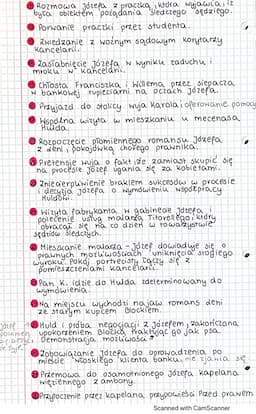 Rozmowa Józefa z praczką, która wyjawia, iż
była obiektem pożądania śledczego sędziego.
Porwanie praczki przez studenta.
Zwiedzanie z woźnym sądowym korytarzy
kancelarii.
Zasłabnięcie Józefa w wyniku zaduchu i
mroku w kancelarii.
Chłosta Franciszka i Willema przez siepacza
w bankowej rupieciarni na oczach Józefa.
Przyjazd do stolicy wuja Karola i oferowanie pomocy
Wspólna wizyta w mieszkaniu u mecenasa
Hulda.
Rozpoczęcie płomiennego romansu Józefa
z Leni, pokojówką chorego prawnika.
Pretensje wuja o fakt że zamiast skupić się
na procesie Józef ugania się za kobietami.
Zniecierpliwienie brakiem sukcesów w procesie
i decyzja Józefa o wymówieniu współpracy
Huldowi.
Wizyta fabrykanta w gabinecie Józefa i
polecenie usług malarza Titorellego, który
obracał się na co dzień w towarzystwie
sędziów śledczych.
Mieszkanie malarza - Józef dowiaduje się o
prawnych możliwościach uniknięcia srogiego
wyroku. Pokój portrecisty łączy się z
pomieszczeniami kancelarii.
Pan K. idzie do Hulda zdeterminowany do
wymówienia.
Na miejscu wychodzi na jaw romans Leni
ze starym kupcem Blockiem.
Huld i próba negocjacji z Józefem, zakończona
upokorzeniem Blocka, traktując go jak psa.
Demonstracja możliwości.
Zobowiązanie Józefa do oprowadzenia po
mieście włoskiego klienta banku, nie zjawia się
Przemowa do osamotnionego Józefa kapelana
więziennego z ambony.
Przytoczenie przez kapelana przypowieści Przed prawem
Scanned with CamScanner